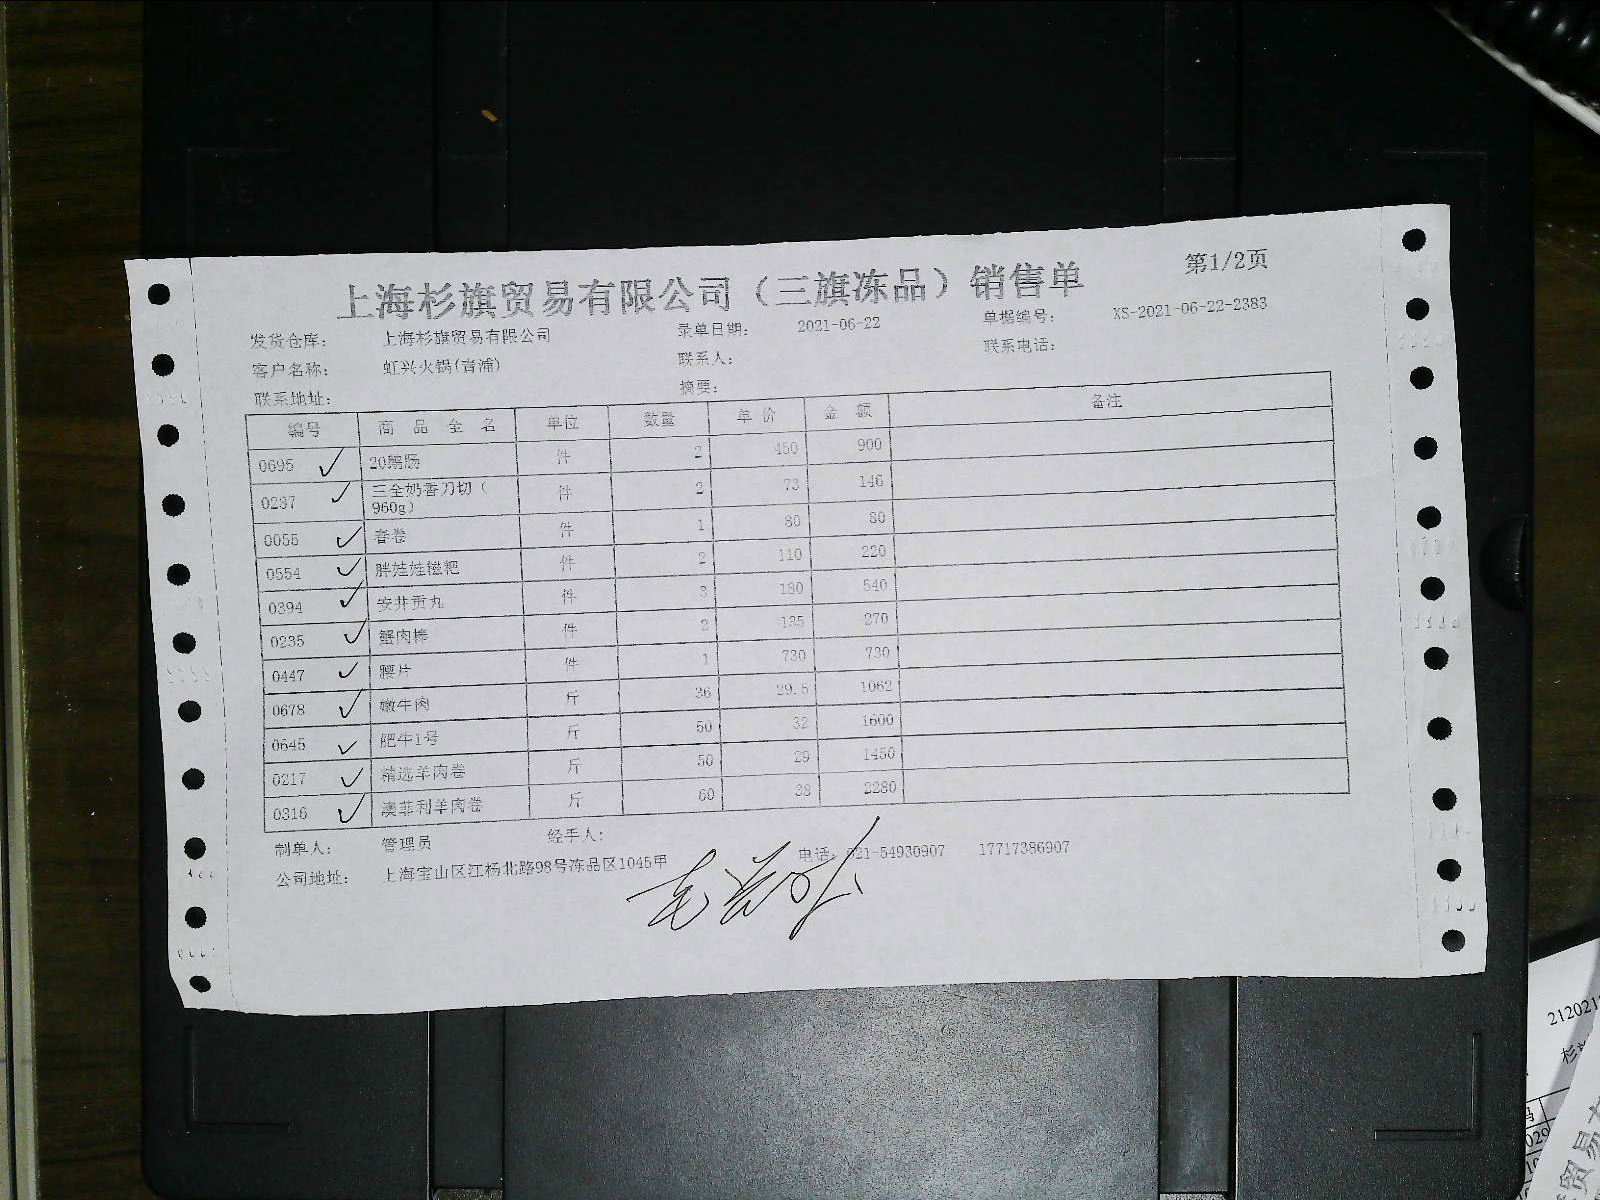 上海杉旗贸易有限公司（三旗冻品）销售单
第1/2页
发货仓库： 上海杉旗贸易有限公司 录单日期： 2021-06-22 单据编号： XS-2021-06-22-2383
客户名称： 虹兴火锅(青浦) 联系人： 联系电话：
联系地址： 摘要：
编号 商品全名 单位 数量 单价 金额 备注
0695 ✓ 20鹅肠 件 2 450 900
0237 ✓ 三全奶香刀切（960g） 件 2 73 146
0055 ✓ 春卷 件 1 80 80
0554 ✓ 胖娃娃糍粑 件 2 110 220
0394 ✓ 安井贡丸 件 3 180 540
0235 ✓ 蟹肉棒 件 2 135 270
0447 ✓ 腰片 件 1 730 730
0678 ✓ 嫩牛肉 斤 36 29.5 1062
0645 ✓ 肥牛1号 斤 50 32 1600
0217 ✓ 精选羊肉卷 斤 50 29 1450
0316 ✓ 澳菲利羊肉卷 斤 60 38 2280
制单人： 管理员 经手人：
公司地址： 上海宝山区江杨北路98号冻品区1045甲 电话：021-54930907 17717386907
212021
杉
029
贸易